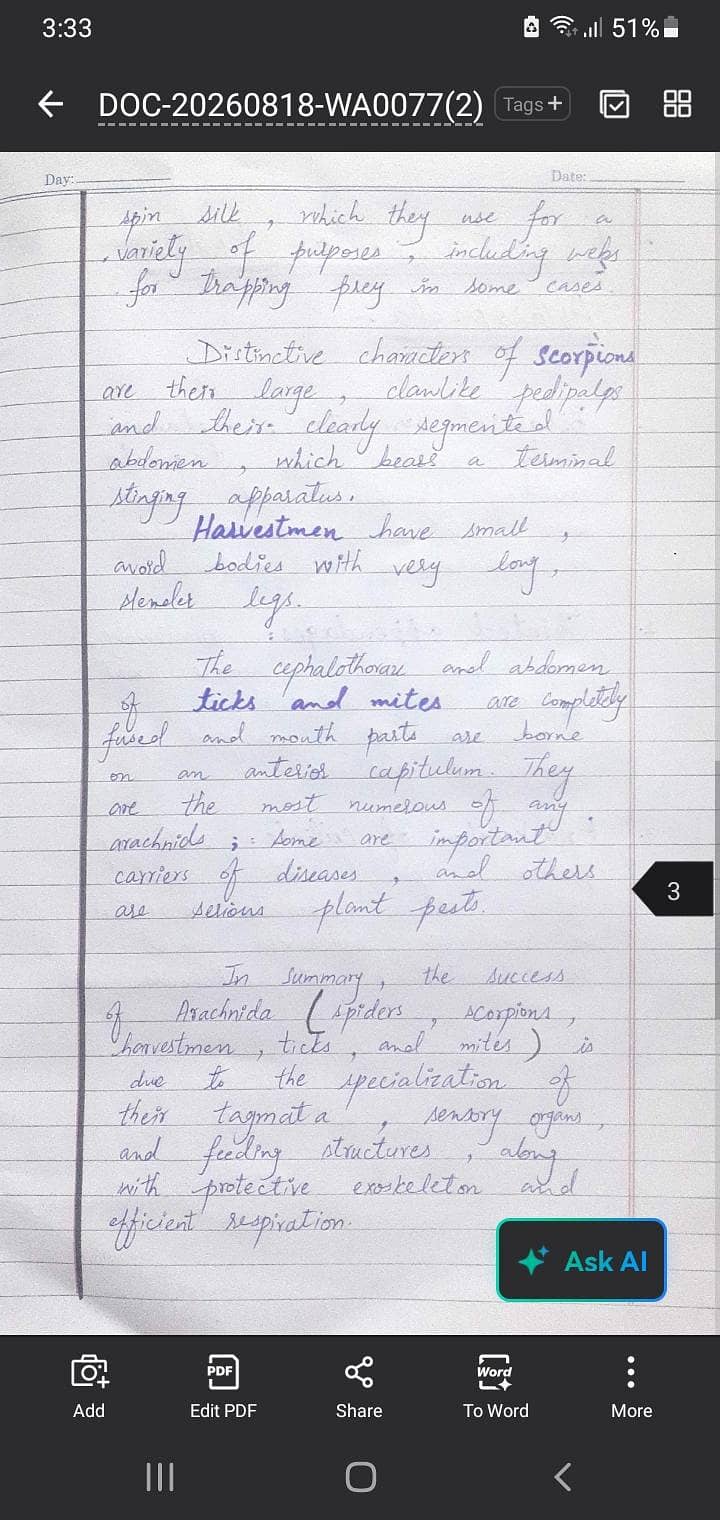 3:33
51%
DOC-20260818-WA0077(2)
Tags +
Day:
Date:
spin silk , which they use for a
variety of purposes , including webs
for trapping prey in some cases.
Distinctive characters of Scorpions
are their large , clawlike pedipalps
and their clearly segmented
abdomen , which bears a terminal
stinging apparatus.
Harvestmen have small ,
ovoid bodies with very long ,
slender legs.
The cephalothorax and abdomen
of ticks and mites are completely
fused and mouth parts are borne
on an anterior capitulum. They
are the most numerous of any
arachnids ; some are important
carriers of diseases , and others
are serious plant pests.
In summary , the success
of Arachnida ( spiders , scorpions ,
harvestmen , ticks , and mites ) is
due to the specialization of
their tagmata , sensory organs ,
and feeding structures , along
with protective exoskeleton and
efficient respiration.
3
Ask AI
PDF
Word
Add
Edit PDF
Share
To Word
More